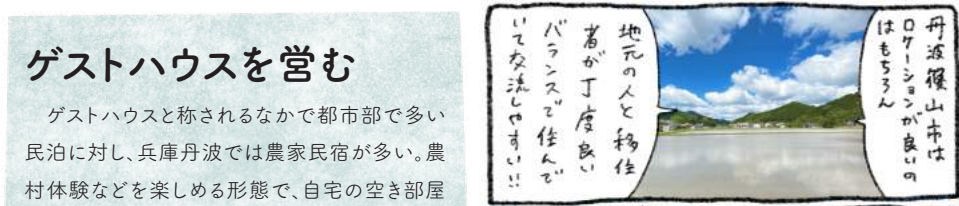 ゲストハウスを営む
　ゲストハウスと称されるなかで都市部で多い
民泊に対し、兵庫丹波では農家民宿が多い。農
村体験などを楽しめる形態で、自宅の空き部屋
丹波篠山市は
ロケーションが良いの
はもちろん
地元の人と移住
者が丁度良い
バランスで住んで
いて交流しやすい!!